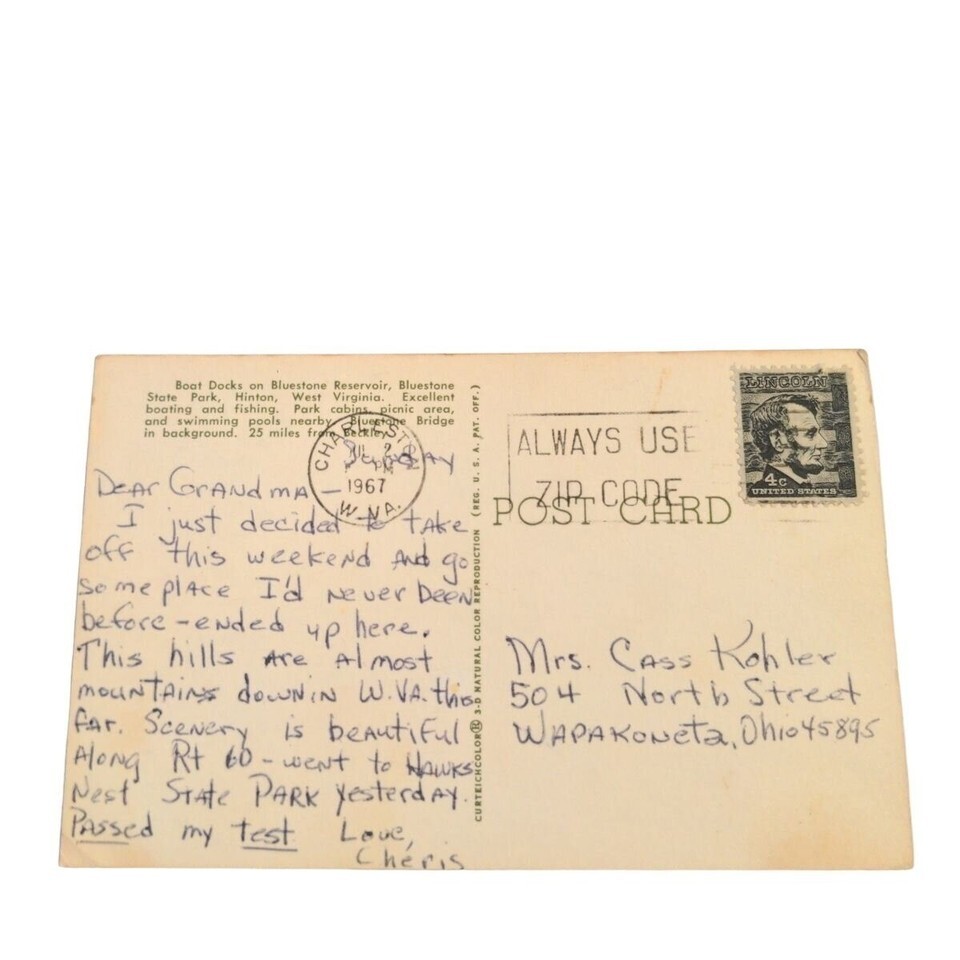 Boat Docks on Bluestone Reservoir, Bluestone
State Park, Hinton, West Virginia. Excellent
boating and fishing. Park cabins, picnic area,
and swimming pools nearby. Bluestone Bridge
in background. 25 miles from Beckley.
CHARLESTON
JUL 2
PM
1967
W. VA.
Sunday
Dear Grandma —
I just decided to take
off this weekend and go
someplace I'd never been
before - ended up here.
This hills are almost
mountains down in W.VA. this
far. Scenery is beautiful
along Rt 60 - went to Hawks
Nest State Park yesterday.
Passed my test Love,
Cheris
CURTEICHCOLOR® 3-D NATURAL COLOR REPRODUCTION (REG. U. S. A. PAT. OFF.)
ALWAYS USE
ZIP CODE
POST CARD
LINCOLN
4c
UNITED STATES
Mrs. Cass Kohler
504 North Street
Wapakoneta, Ohio 45895